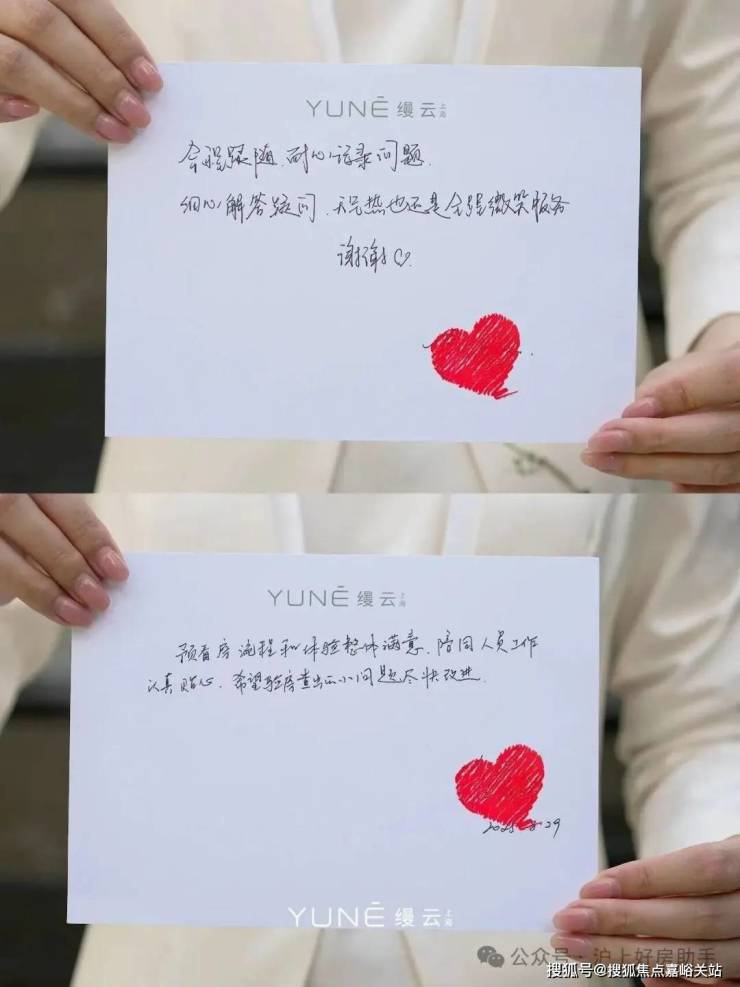 YUNĒ 缦云上海
全程跟随、耐心记录问题、
细心解答疑问、天气热也还是全程微笑服务
谢谢♡
YUNĒ 缦云上海
预看房流程和体验整体满意、陪同人员工作
认真贴心、希望验房查出的小问题尽快改进.
2025-8-29
YUNĒ 缦云上海
公众号·沪上好房助手
搜狐号@搜狐焦点嘉峪关站